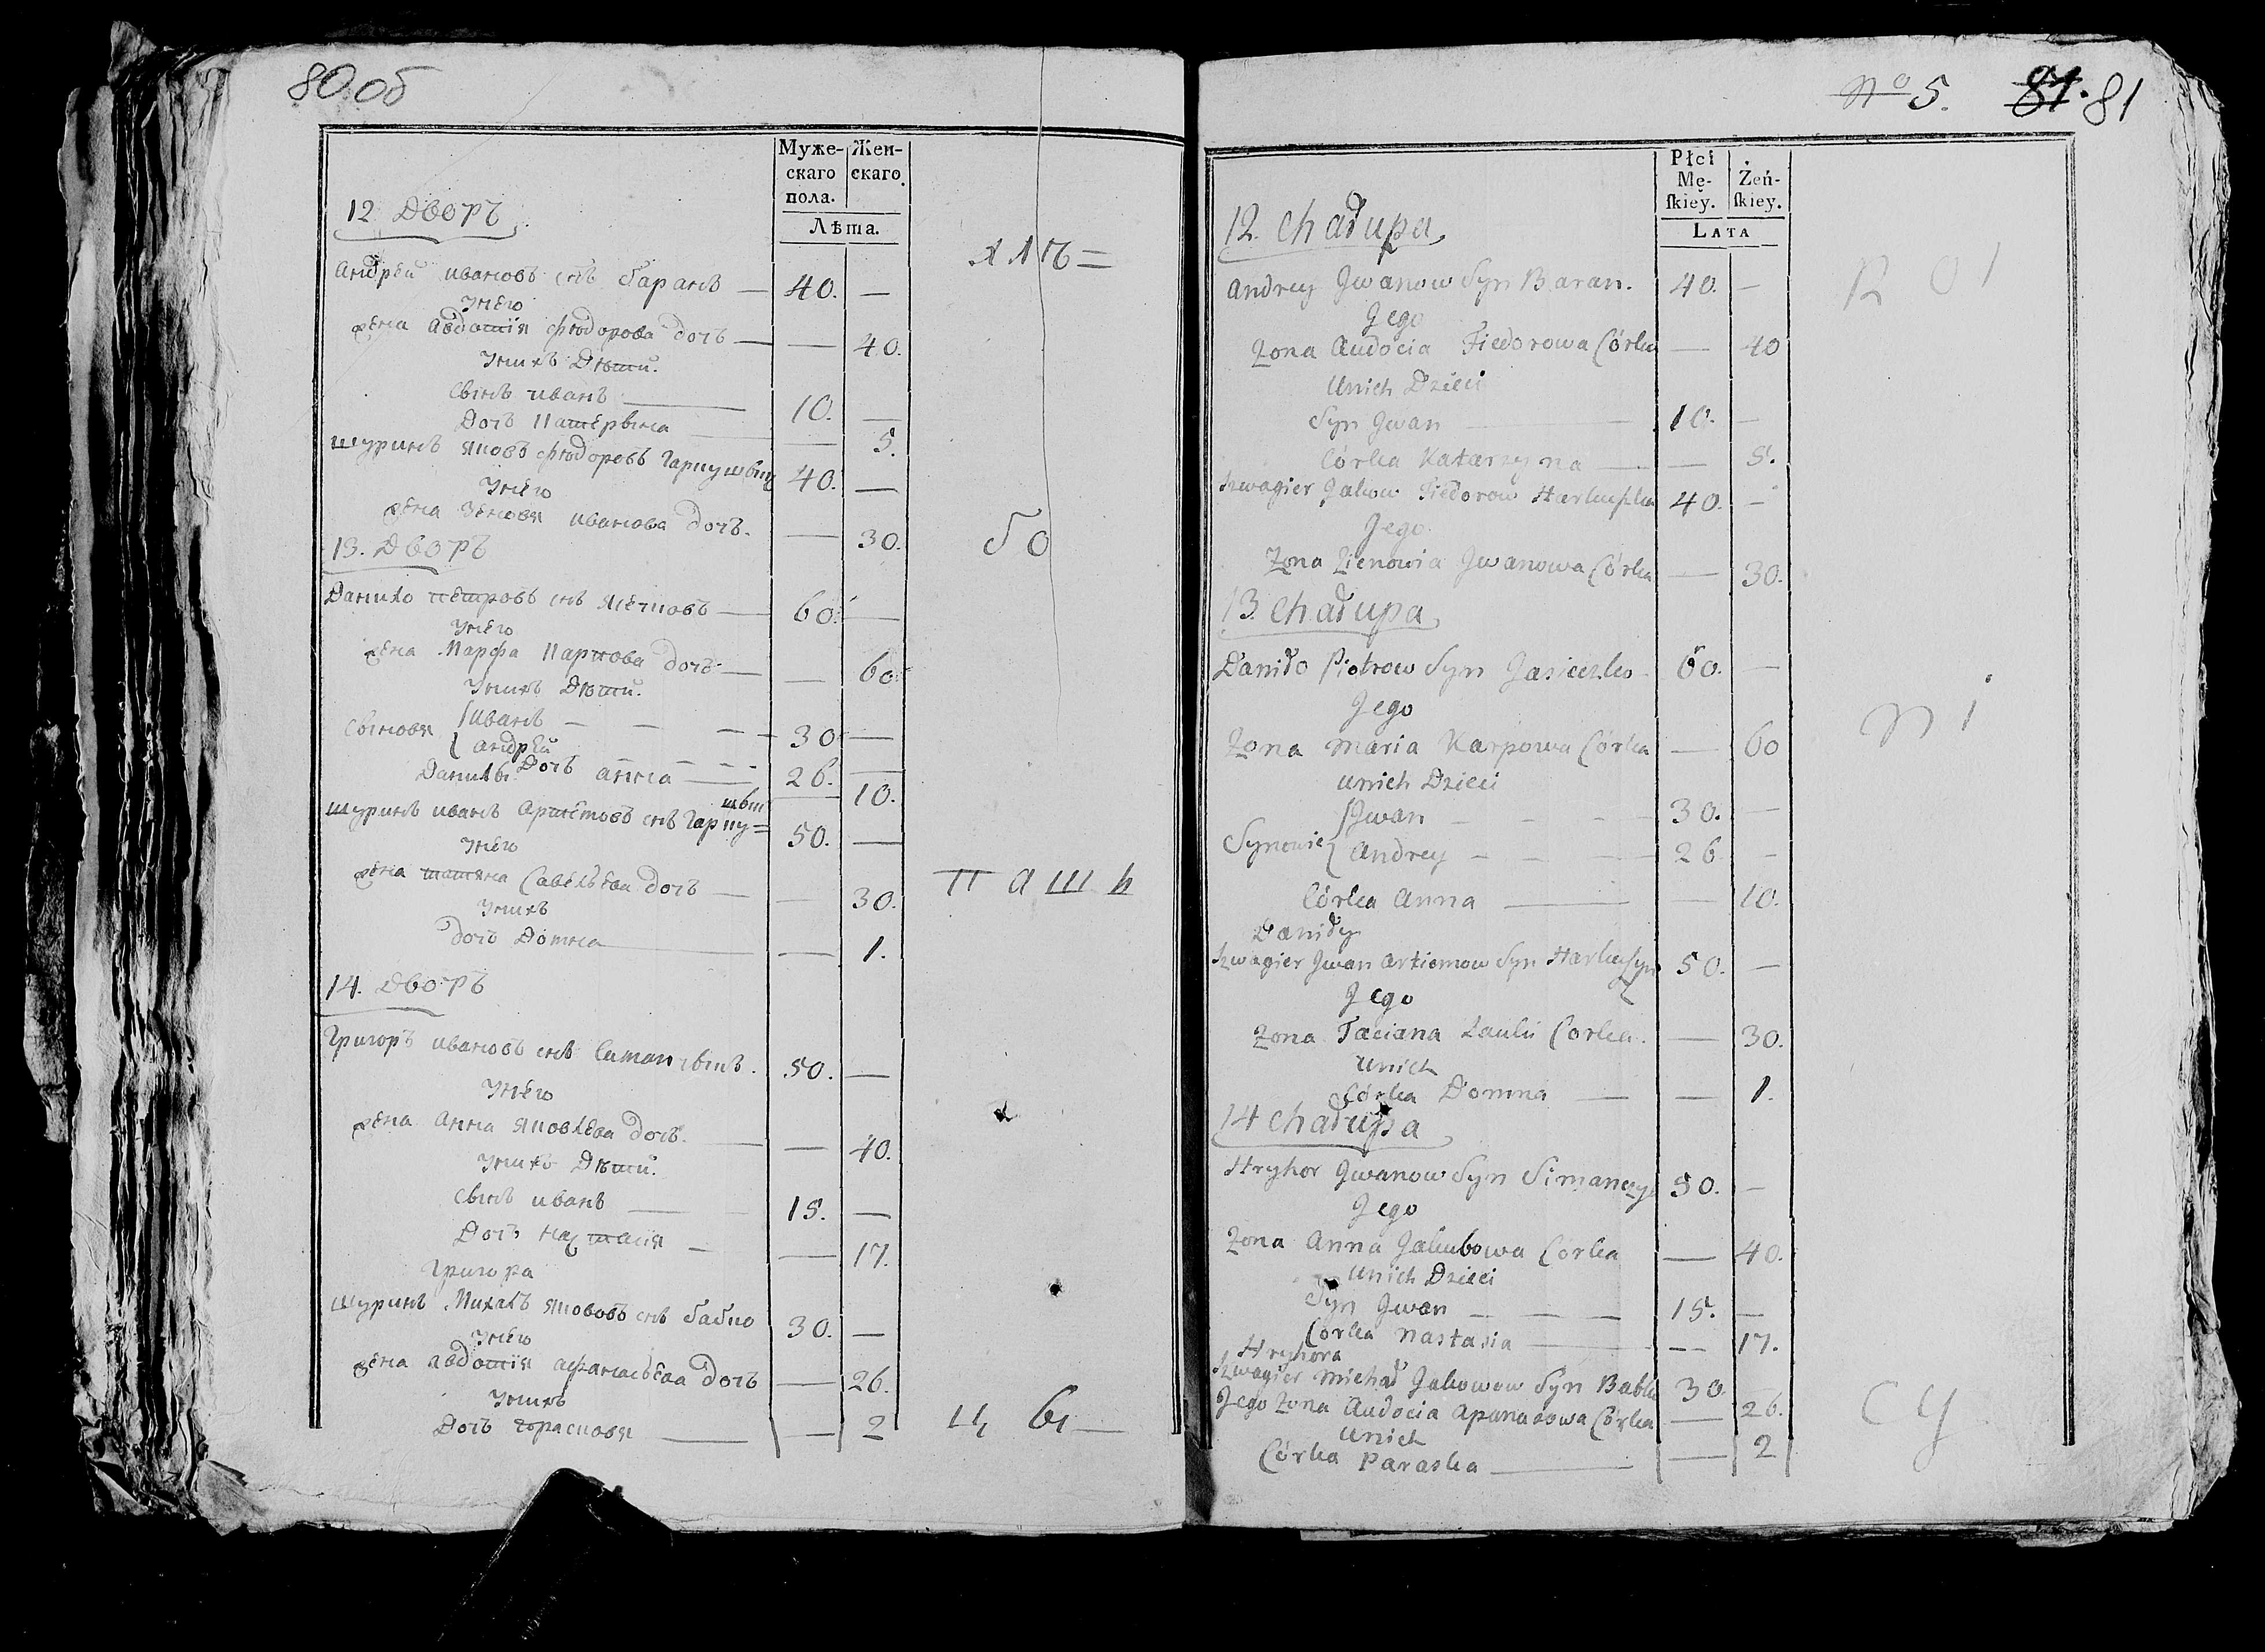 80 об
Муже-
скаго
пола.
Жен-
скаго.
Лѣта.
12 Дворъ
Андрей ивановъ снъ баранъ — 40. —
унего
жена Авдотія фіодорова дочъ — — 40.
унихъ Дѣти.
Сынъ иванъ — 10. —
Дочъ Катерына — — 5.
шуринъ яковъ фіодоровъ гаркушынъ 40. —
унего
жена Зеновя иванова дочъ. — 30.
13. Дворъ
Данило петровъ снъ ясечковъ — 60. —
унего
жена Марфа Карпова дочъ — — 60.
унихъ Дѣти.
Сыновя { иванъ — 30 —
{ андрей — 26. —
Дочъ анна — — 10.
Данилы
шуринъ иванъ Артемовъ снъ Гарку=
шын 50. —
унего
жена татяна Савельева дочъ — — 30.
унихъ
дочъ Домна — — 1.
14. Дворъ
Григоръ ивановъ снъ Симанчыкъ. 50. —
унего
жена Анна яковлева дочъ. — — 40.
унихъ Дѣти.
Сынъ иванъ — 15. —
Дочъ настасия — — 17.
Григора
шуринъ Михалъ якововъ снъ бабко 30. —
унего
жена авдотія афанасьева дочъ — 26.
унихъ
Дочъ — — 2
ллъ =
бо
п а ш и
ц ы —
№ 5. 81
Płci
Mę-
ſkiey.
Żeń-
ſkiey.
LATA
12. Chałupa
Andrey Jwanow Syn Baran. 40. —
Jego
Żona Audocia Fiedorowa Córka — 40
Unich Dzieci
Syn Jwan — 10. —
Córka Katarzyna — — 5.
Szwagier Jakow Fiedorow Harkuszka 40. —
Jego
Żona Zienowia Jwanowa Córka — 30.
13. Chałupa
Daniło Piotrow Syn Jasieczko 60. —
Jego
Żona Maria Karpowa Córka — 60
Unich Dzieci
Synowie { Jwan — 30. —
{ Andrey — 26 —
Córka Anna — — 10.
Daniły
Szwagier Jwan Artiemow Syn Harkuszyn 50. —
Jego
Żona Taciana Córka. — 30.
Unich
Córka Domna — — 1.
14 Chałupa
Hryhor Jwanow Syn Simanczyk 50. —
Jego
Żona Anna Jakubowa Córka — 40.
Unich Dzieci
Syn Jwan — 15. —
Córka Nastasia — — 17.
Hryhora
Szwagier Michał Jakowow Syn Babko 30 —
Jego Żona Audocia Apanasowa Córka — 26.
Unich
Córka Paraska — — 2